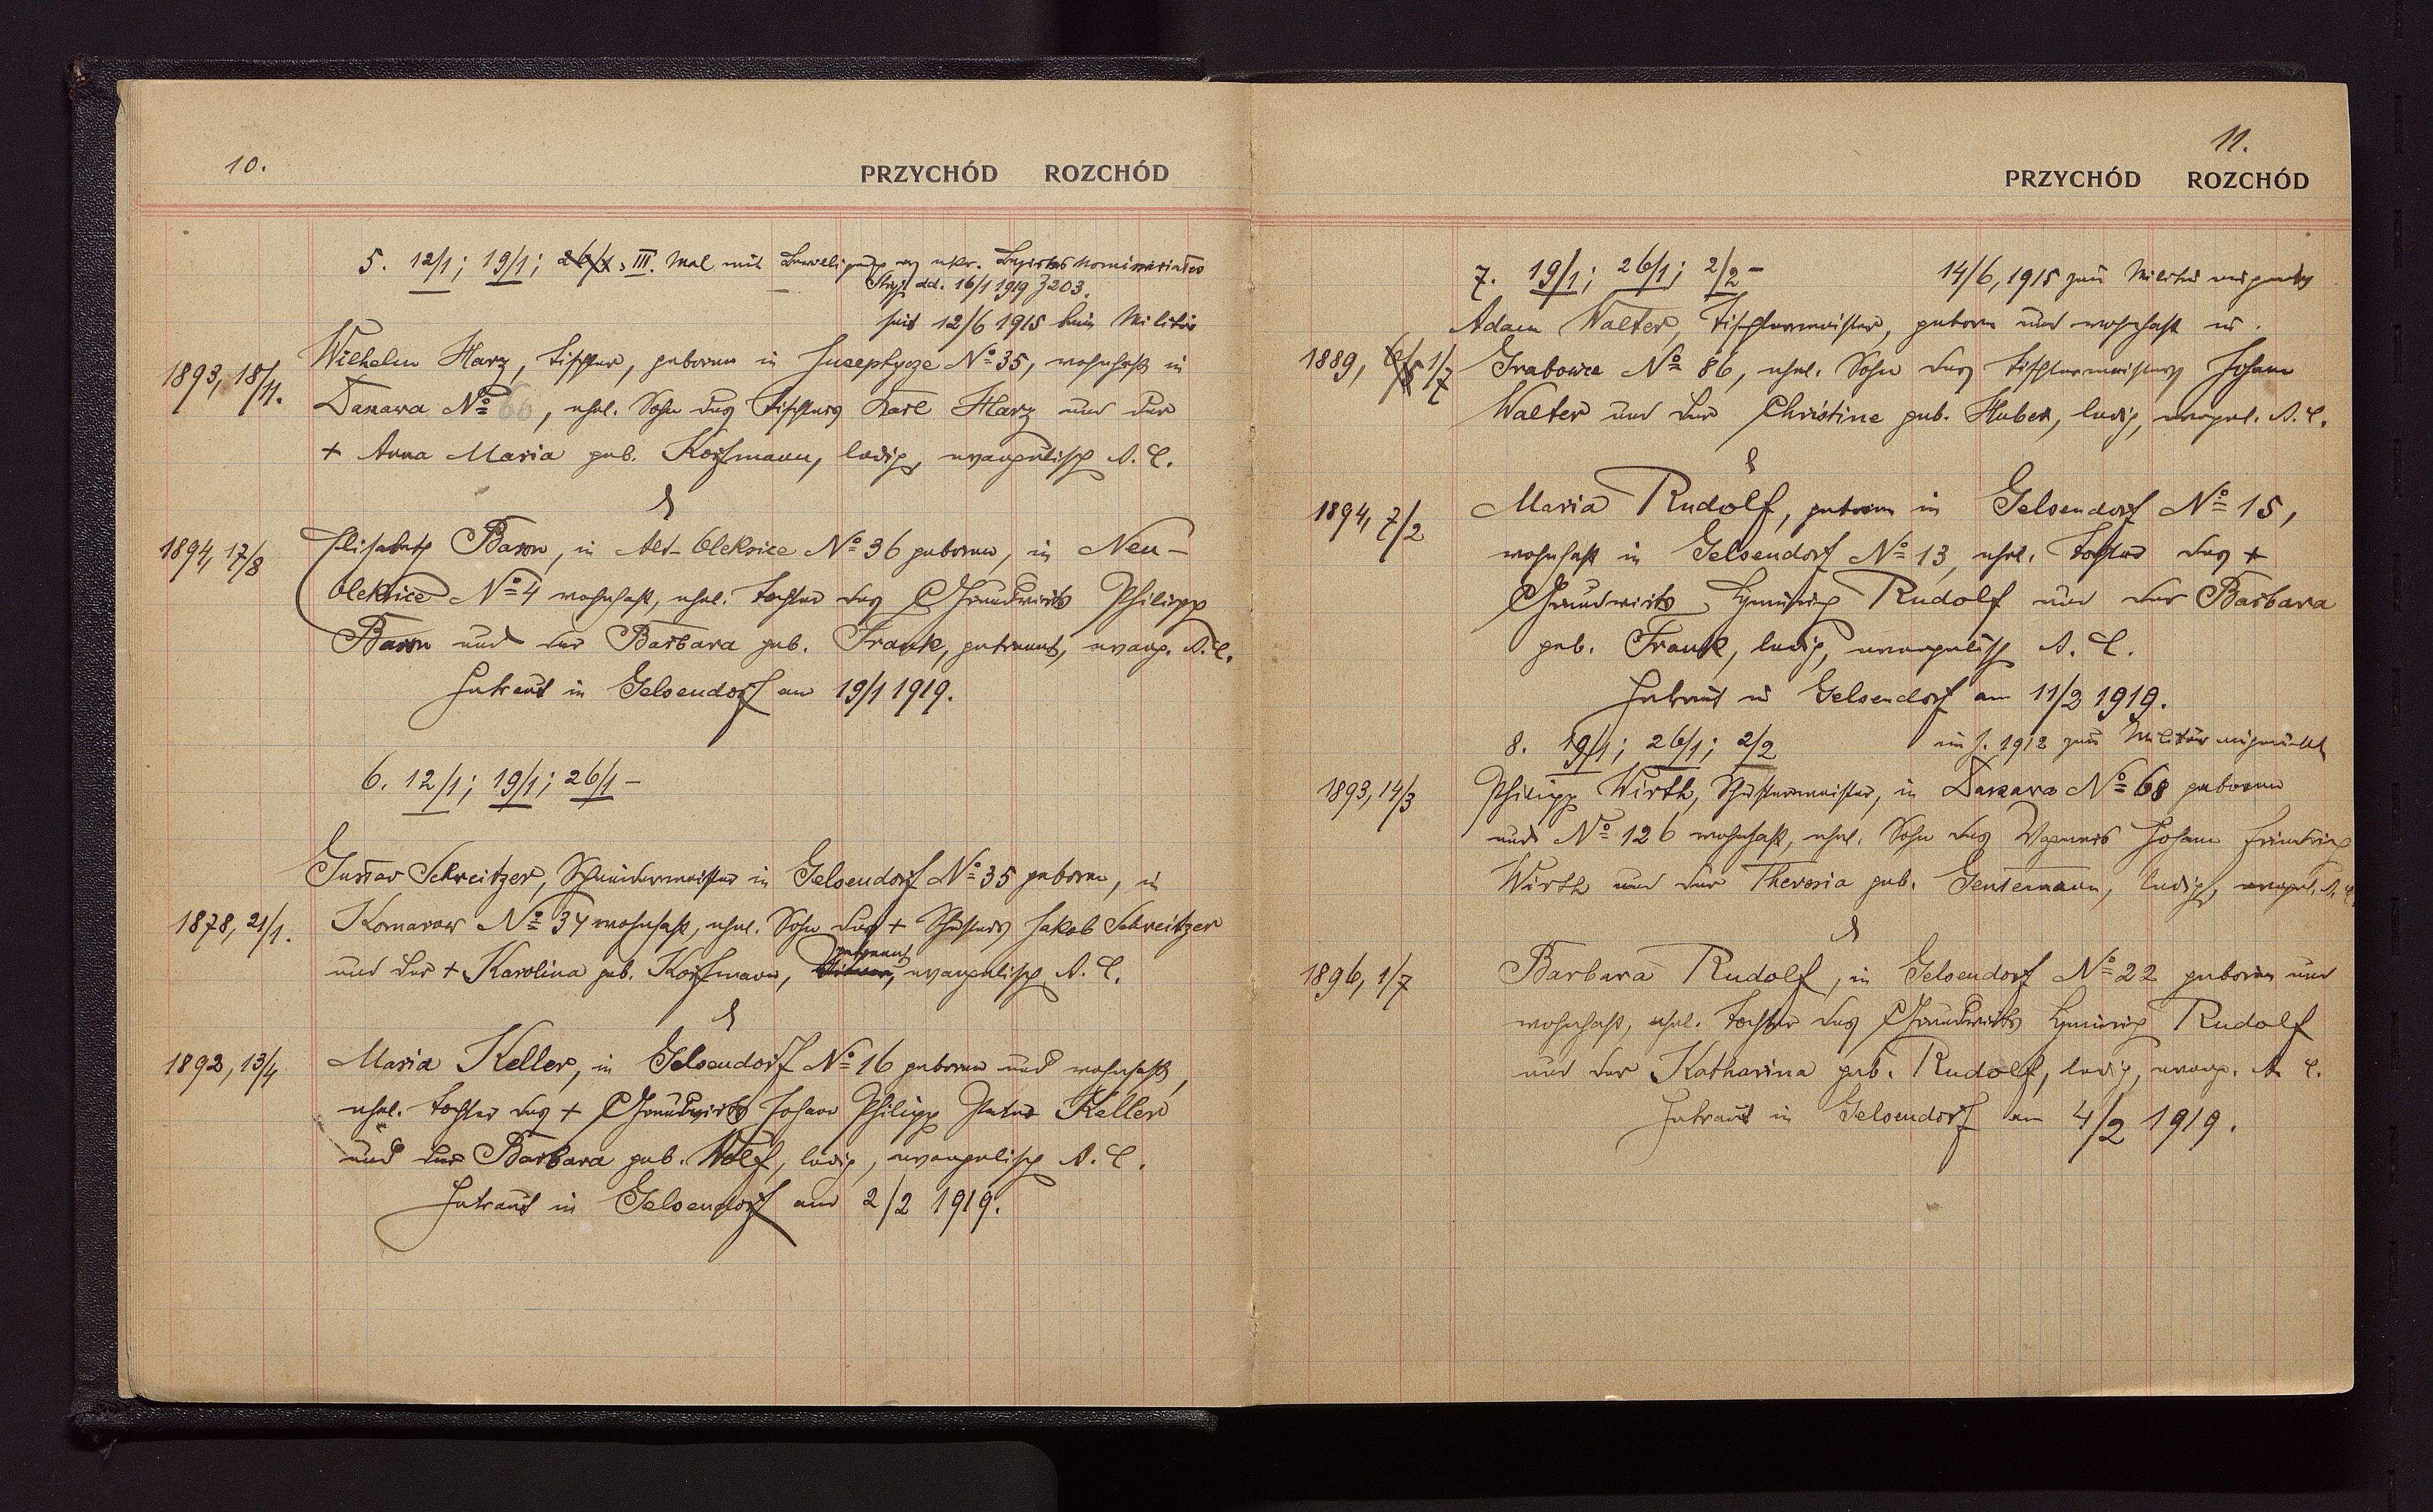 10.
PRZYCHÓD ROZCHÓD
5. 12/1; 19/1; 26/1, III. Mal mit Bewilligung ukr. Bezirkskommissariates
Stryj dd. 16/1 1919 Z 203.
seit 12/6 1915 beim Militär
Wilhelm Harz, Tischler, geboren in Juseptycze No 35, wohnhaft in
1893, 18/11.
Daxava No 66, ehel. Sohn des Tischlers Karl Harz und der
+ Anna Maria geb. Korfmann, ledig, evangelisch A. C.
&
Elisabeth Baron, in Alt-Oleksice No 36 geboren, in Neu-
1894, 17/8
Oleksice No 4 wohnhaft, ehel. Tochter des Grundwirts Philipp
Baron und der Barbara geb. Frank, getrennt, evang. A. C.
Getraut in Gelsendorf am 19/1 1919.
6. 12/1; 19/1; 26/1 –
Gustav Schreitzer, Schneidermeister in Gelsendorf No 35 geboren, in
1878, 21/1.
Komarow No 34 wohnhaft, ehel. Sohn des + Schusters Jakob Schreitzer
getrennt
und der + Karolina geb. Korfmann, Witwer, evangelisch A. C.
&
1892, 13/4
Maria Keller, in Gelsendorf No 16 geboren und wohnhaft,
ehel. Tochter des + Grundwirts Johann Philipp Peter Keller
und der Barbara geb. Wolf, ledig, evangelisch A. C.
Getraut in Gelsendorf am 2/2 1919.
11.
PRZYCHÓD ROZCHÓD
7. 19/1; 26/1; 2/2 – 14/6, 1915 zum Militär
Adam Walter, Tischlermeister, geboren und wohnhaft in
1889, 1/7
Grabowce No 86, ehel. Sohn des Tischlermeisters Johann
Walter und der Christine geb. Huber, ledig, evangel. A. C.
&
1894, 7/2
Maria Rudolf, geboren in Gelsendorf No 15,
wohnhaft in Gelsendorf No 13, ehel. Tochter des +
Grundwirts Heinrich Rudolf und der Barbara
geb. Frank, ledig, evangelisch A. C.
Getraut in Gelsendorf am 11/2 1919.
8. 19/1; 26/1; 2/2 im J. 1912 zum Militär eingerückt
1893, 14/3
Philipp Wirth, Schustermeister, in Daxava No 68 geboren
und No 126 wohnhaft, ehel. Sohn des Wagners Johann Friedrich
Wirth und der Theresia geb. Gensemann, ledig, evangel. A. C.
&
1896, 1/7
Barbara Rudolf, in Gelsendorf No 22 geboren und
wohnhaft, ehel. Tochter des Grundwirts Heinrich Rudolf
und der Katharina geb. Rudolf, ledig, evang. A. C.
Getraut in Gelsendorf am 4/2 1919.